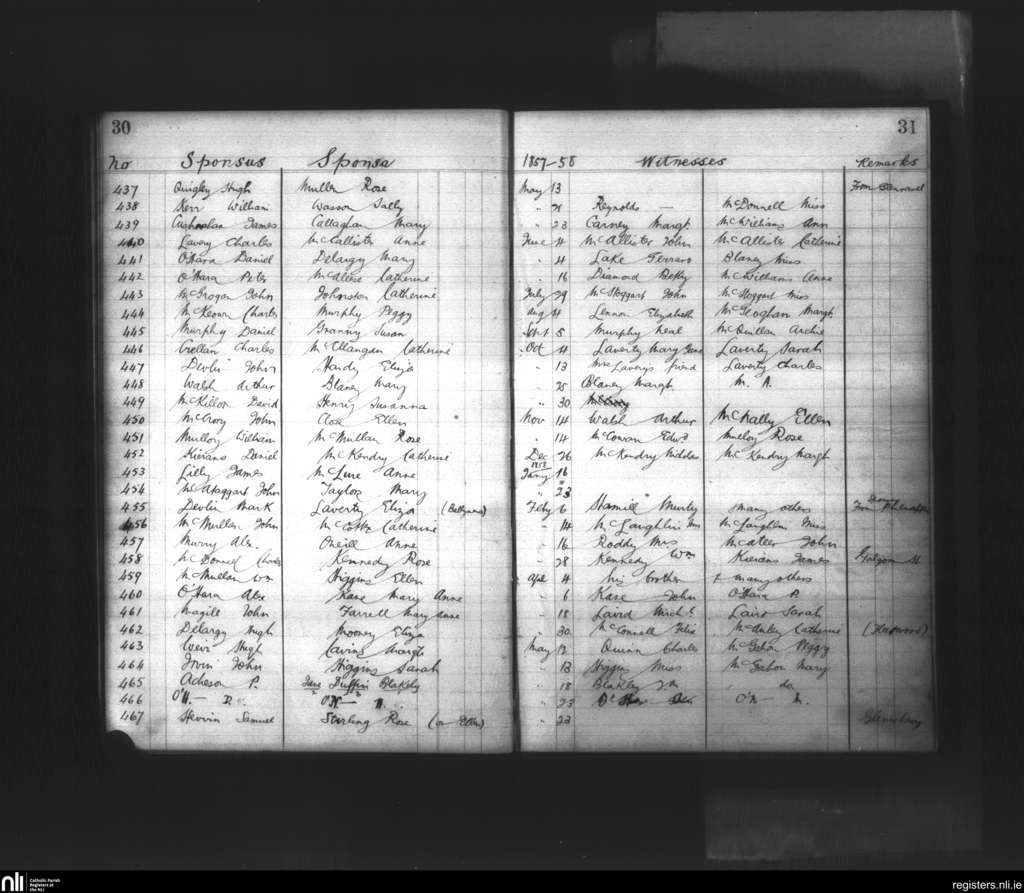 30 31
No Sponsus Sponsa 1857-58 Witnesses Remarks
437 Quigley Hugh Mullen Rose May 13 From
438 Kerr William Wasson Sally " 21 Reynolds — McDonnell Miss
439 James Callaghan Mary " 23 Carney Margt McWilliams Ann
440 Lavery Charles McCallister Anne June 4 McAllister John McAllister Catherine
441 O'Hara Daniel Delargy Mary " 4 Lake Blaney Miss
442 O'Hara Peter McAleese Catherine " 16 Diamond Betty McWilliams Anne
443 McGrogan John Johnston Catherine July 29 McStoggart John McStoggart Miss
444 McKeown Charles Murphy Peggy Aug 4 Lennon Elizabeth McGeoghan Margt
445 Murphy Daniel Granny Susan Sept 5 Murphy Neal McQuillan Archie
446 Crellan Charles Catherine Oct 4 Laverty Mary Jane Laverty Sarah
447 Devlin John Hardy Eliza " 13 Mrs Lavery's friend Laverty Charles
448 Walsh Arthur Blaney Mary " 25 Blaney Margt M. A.
449 McKillop David Henry Susanna " 30
450 McCrory John Close Ellen Nov 14 Walsh Arthur McNally Ellen
451 Mulloy William McMullan Rose " 14 McCowan Edwd Mulloy Rose
452 Kierans Daniel McKendry Catherine Dec 26 McKendry McKendry Margt
1858
453 Lilly James McLure Anne Jany 16
454 McAtaggart John Taylor Mary " 23
455 Devlin Mark Laverty Eliza Feby 6 Hamill many others From
456 McMullen John Catherine " 14 McLaughlin Jas McLaughlin Miss
457 Murry Alx. Oneill Anne " 16 Roddy Mrs McAteer John
458 McDonnell Charles Kennedy Rose " 28 Kennedy Wm Kierans James
459 McMullan Wm Higgins Ellen Apl 4 his brother + many others
460 O'Hara Alex Kane Mary Anne " 6 Kane John O'Hara P.
461 Magill John Farrell Mary Anne " 18 Laird Michl Laird Sarah
462 Delargy Hugh Mooney Eliza " 30 McConnell Felix McAuley Catherine
463 Weir Hugh Margt May 12 Quinn Charles Peggy
464 Irvin John Higgins Sarah " 13 Higgins Miss Mary
465 Acheson P. Duffin Blakely " 18 Blakley do
466 O'N— O'N— " 23 O'N—
467 Samuel Stirling Rose (or Ellen) " 23
nli Catholic Parish Registers at the NLI
registers.nli.ie